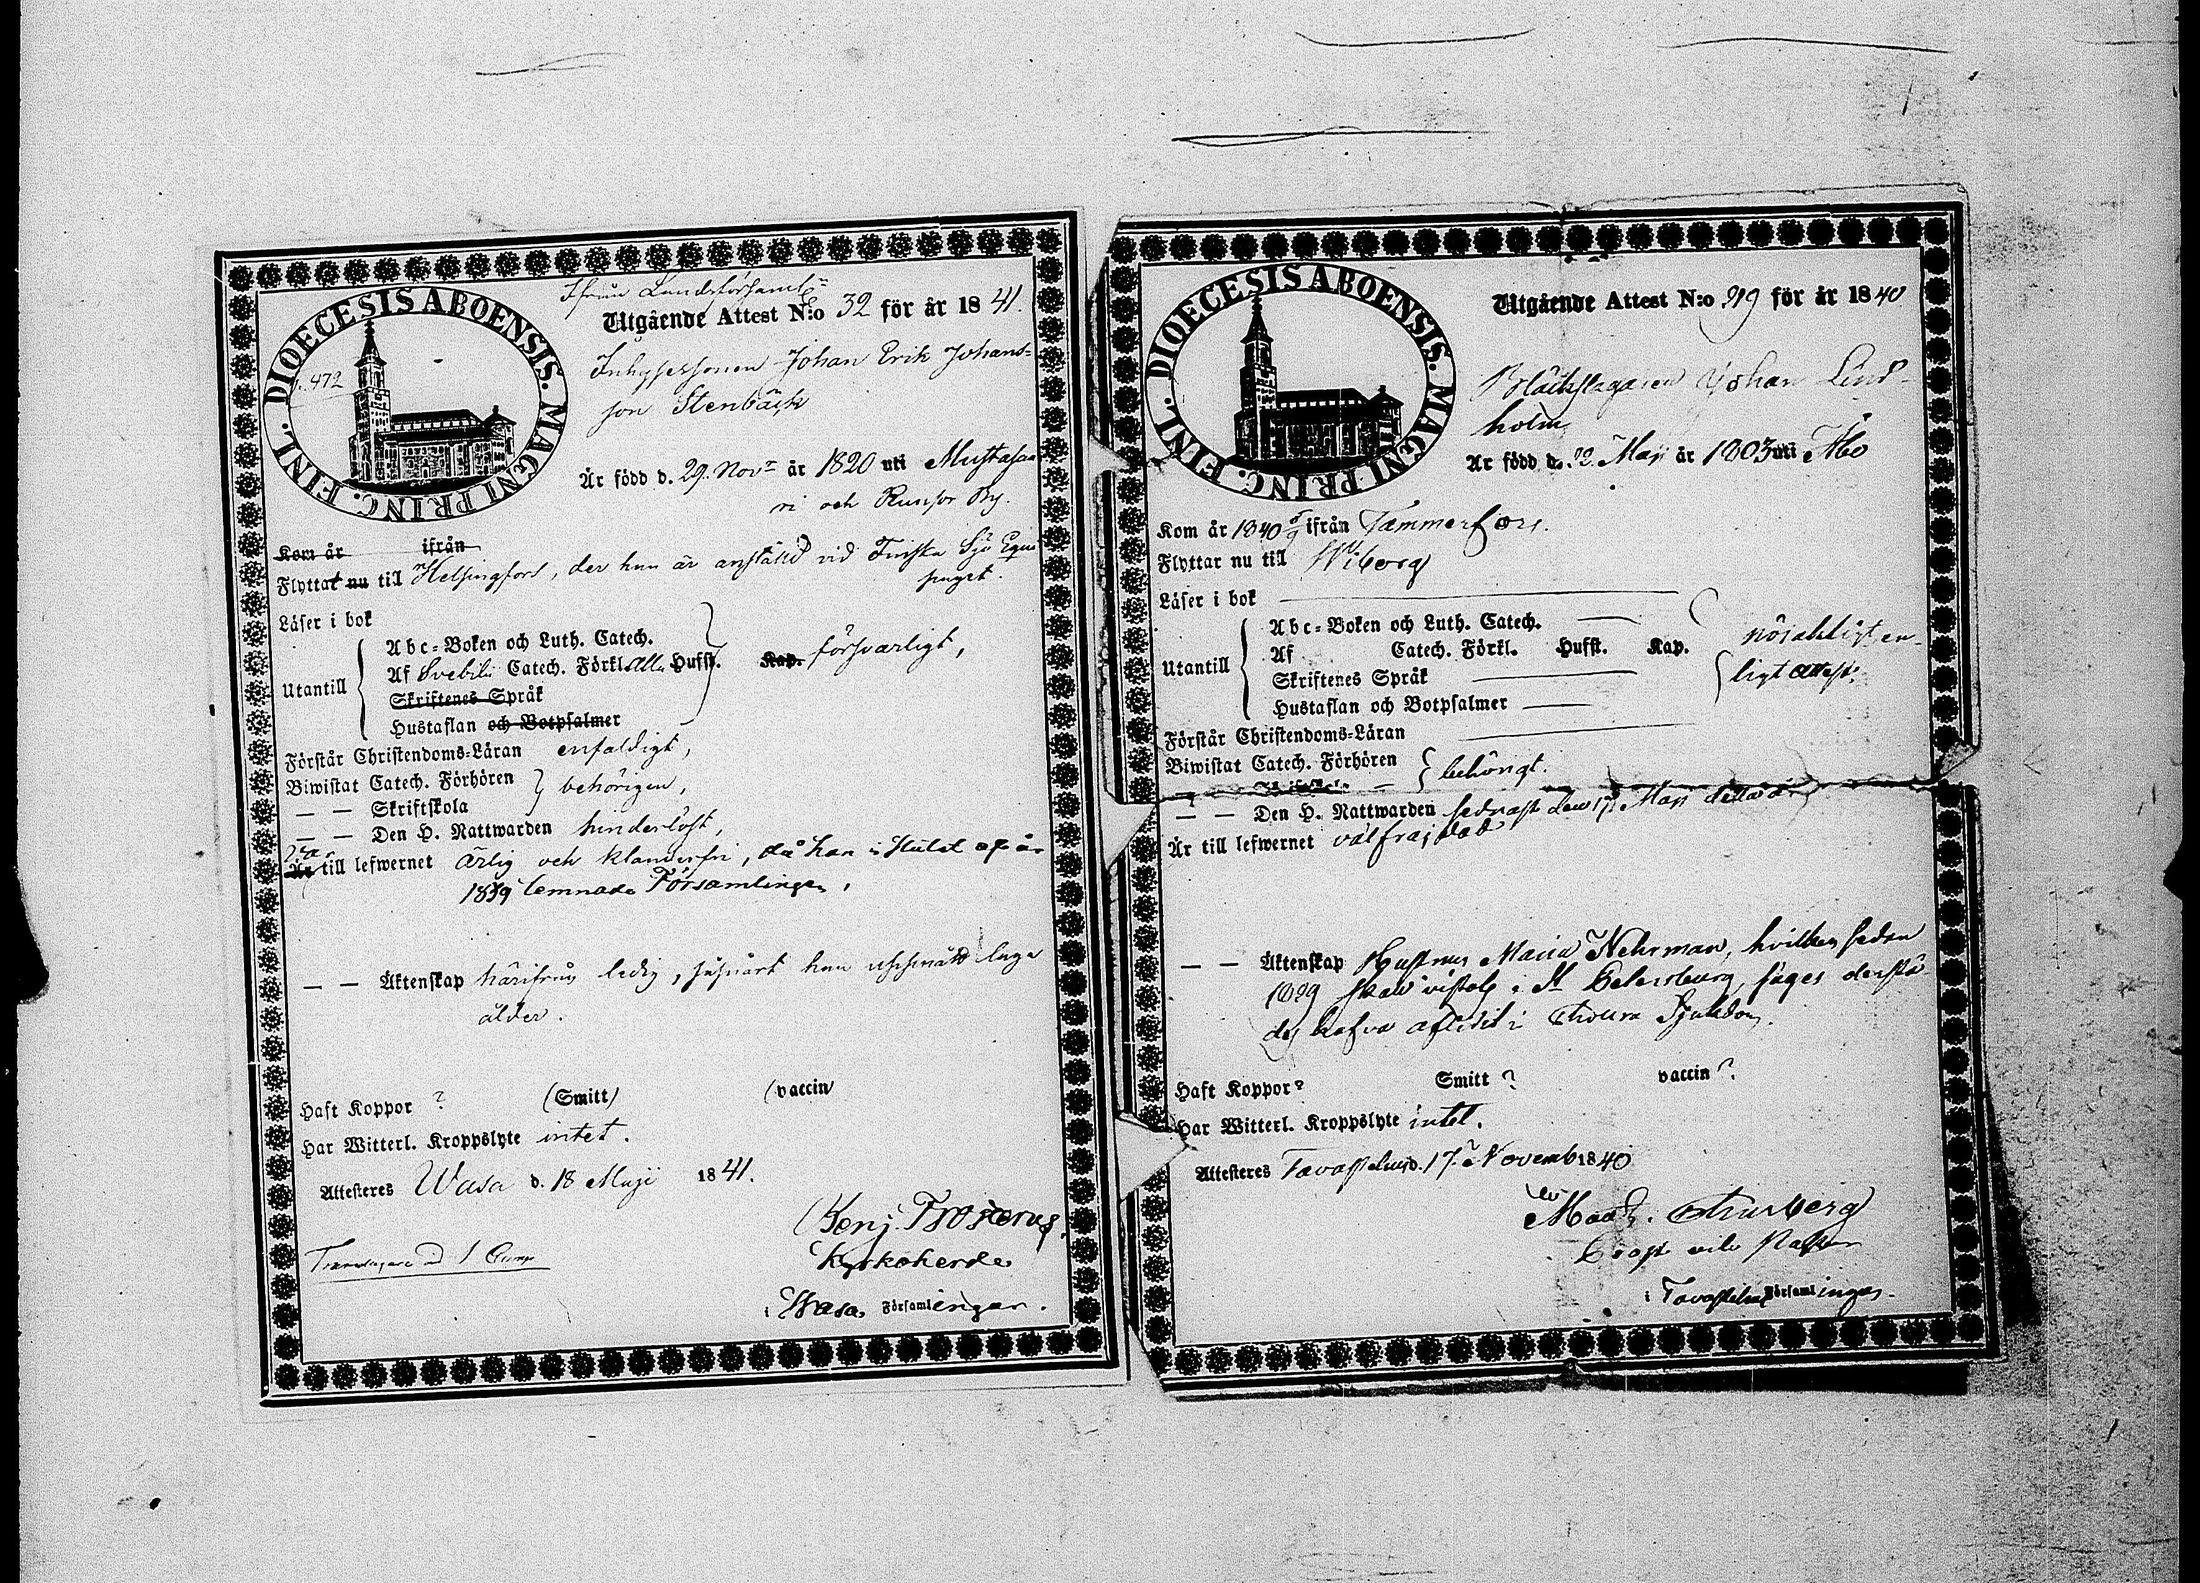 DIOECESIS ABOENSIS. MAGNI PRINC. FINL.
472
Ifrån Landsförsaml:
Utgående Attest N:o 32 för år 1841.
Inhysessonen Johan Erik Johans-
son Stenbäck
Är född d. 29 Nov:r år 1820 uti Mustasaa-
ri och Runsor By.
Kom år ifrån
Flyttat nu till Helsingfors, der han är anställd vid Finska Sjö Equi
paget.
Läser i bok
Utantill
Abc-Boken och Luth. Catech.
Af Svebilii Catech. Förkl. alla Hufst. Kap. försvarligt,
Skriftenes Språk
Hustaflan och Botpsalmer
Förstår Christendoms-Läran enfaldigt,
Biwistat Catech. Förhören behörigen,
— — Skriftskola
— — Den H. Nattwarden hinderlöst,
var
Är till lefwernet ärlig och klanderfri, då han i slutet af år
1839 lemnade Församlingen,
— — Äktenskap härifrån ledig, såsnart han uppnått laga
ålder.
Haft Koppor ? (Smitt) (vaccin
Har Witterl. Kroppslyte intet.
Attesteres Wasa d. 18 Maji 1841.
Benj. Frosterus
Kyrkoherde
i Wasa Församlingar.
DIOECESIS ABOENSIS. MAGNI PRINC. FINL.
Utgående Attest N:o 219 för år 1840
Bläckslagaren Johan Lind-
holm
Är född d. 22 Maji år 1803 uti Åbo
Kom år 1840 ifrån Tammerfors.
Flyttar nu till Wiborg
Läser i bok
Utantill
Abc-Boken och Luth. Catech.
Af Catech. Förkl. Hufst. Kap. nöjaktigt en-
Skriftenes Språk ligt attest.
Hustaflan och Botpsalmer
Förstår Christendoms-Läran
Biwistat Catech. Förhören behörigt.
— — Skriftskola —
— — Den H. Nattwarden sednast den 17 Maji detta år
Är till lefwernet välfrajdad
— — Äktenskap Hustrun Maria Nehrman, hvilken sedan
1829 skall vistats i St Petersburg, säges derstä
des hafva aflidit i Cholera Sjukdom.
Haft Koppor? Smitt? vaccin?.
Har Witterl. Kroppslyte intet.
Attesteres Tavastehus d. 17 Novemb 1840
i Tavastehus Församlingar.